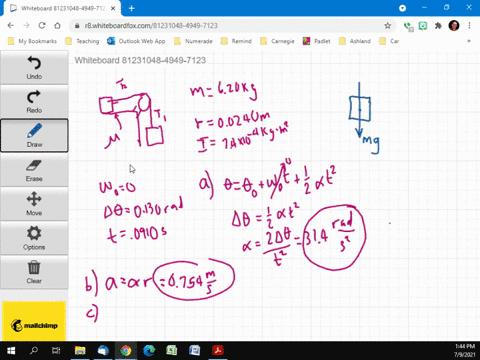 Whiteboard 81231048-4949-712
r8.whiteboardfox.com/81231048-4949-7123
My Bookmarks
Training
Outlook Web App
Numerade
Remind
Carnegie
Padlet
Ashland
Car
Other bookmarks
Whiteboard 81231048-4949-7123
Undo
Redo
Draw
Erase
Move
Options
Clear
mailchimp
T₂
T₁
μ
m = 6.20 kg
r = 0.0240 m
I = 7.4×10⁻⁴ kg·m²
mg
ω₀ = 0
Δθ = 0.130 rad
t = .0910 s
a) θ = θ₀ + ω₀t⁰ + 1/2 αt²
Δθ = 1/2 αt²
α = 2Δθ/t² = 31.4 rad/s²
b) a = αr = 0.754 m/s
c)
1:44 PM
7/9/2021